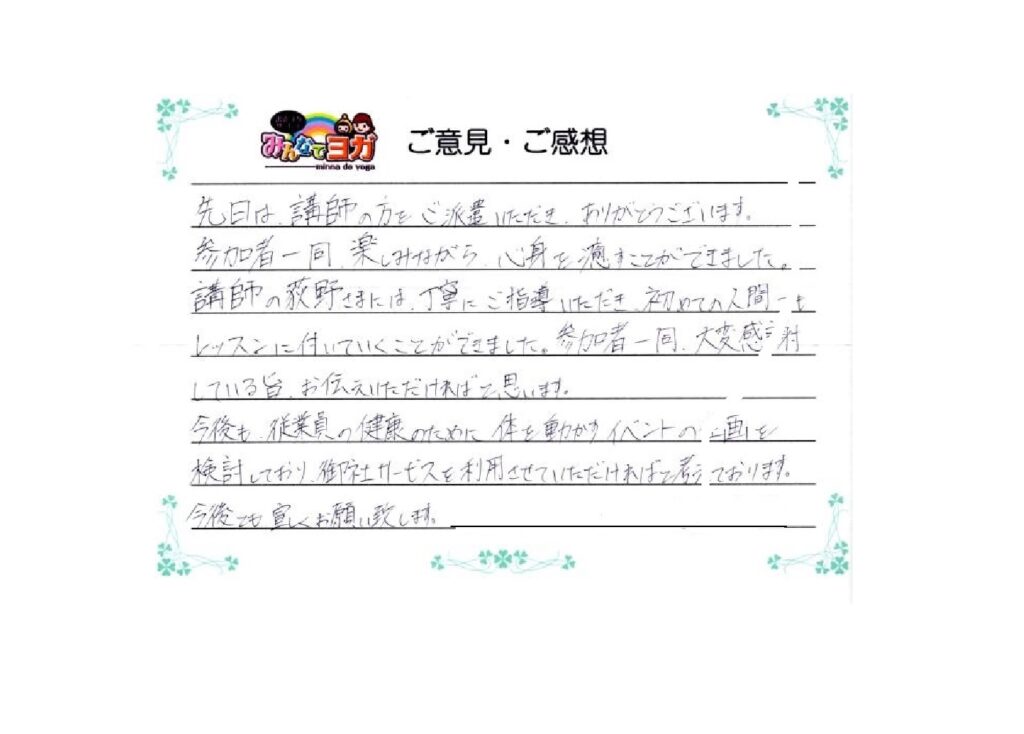 みんなでヨガ
minna de yoga
ご意見・ご感想
先日は、講師の方をご派遣いただき、ありがとうございます。
参加者一同、楽しみながら、心身を癒すことができました。
講師の荻野さまには、丁寧にご指導いただき、初めての人間も
レッスンに付いていくことができました。参加者一同、大変感謝
している旨、お伝えいただければと思います。
今後も、従業員の健康のために体を動かすイベントの 画を
検討しており、御社サービスを利用させていただければと考えております。
今後とも宜しくお願い致します。